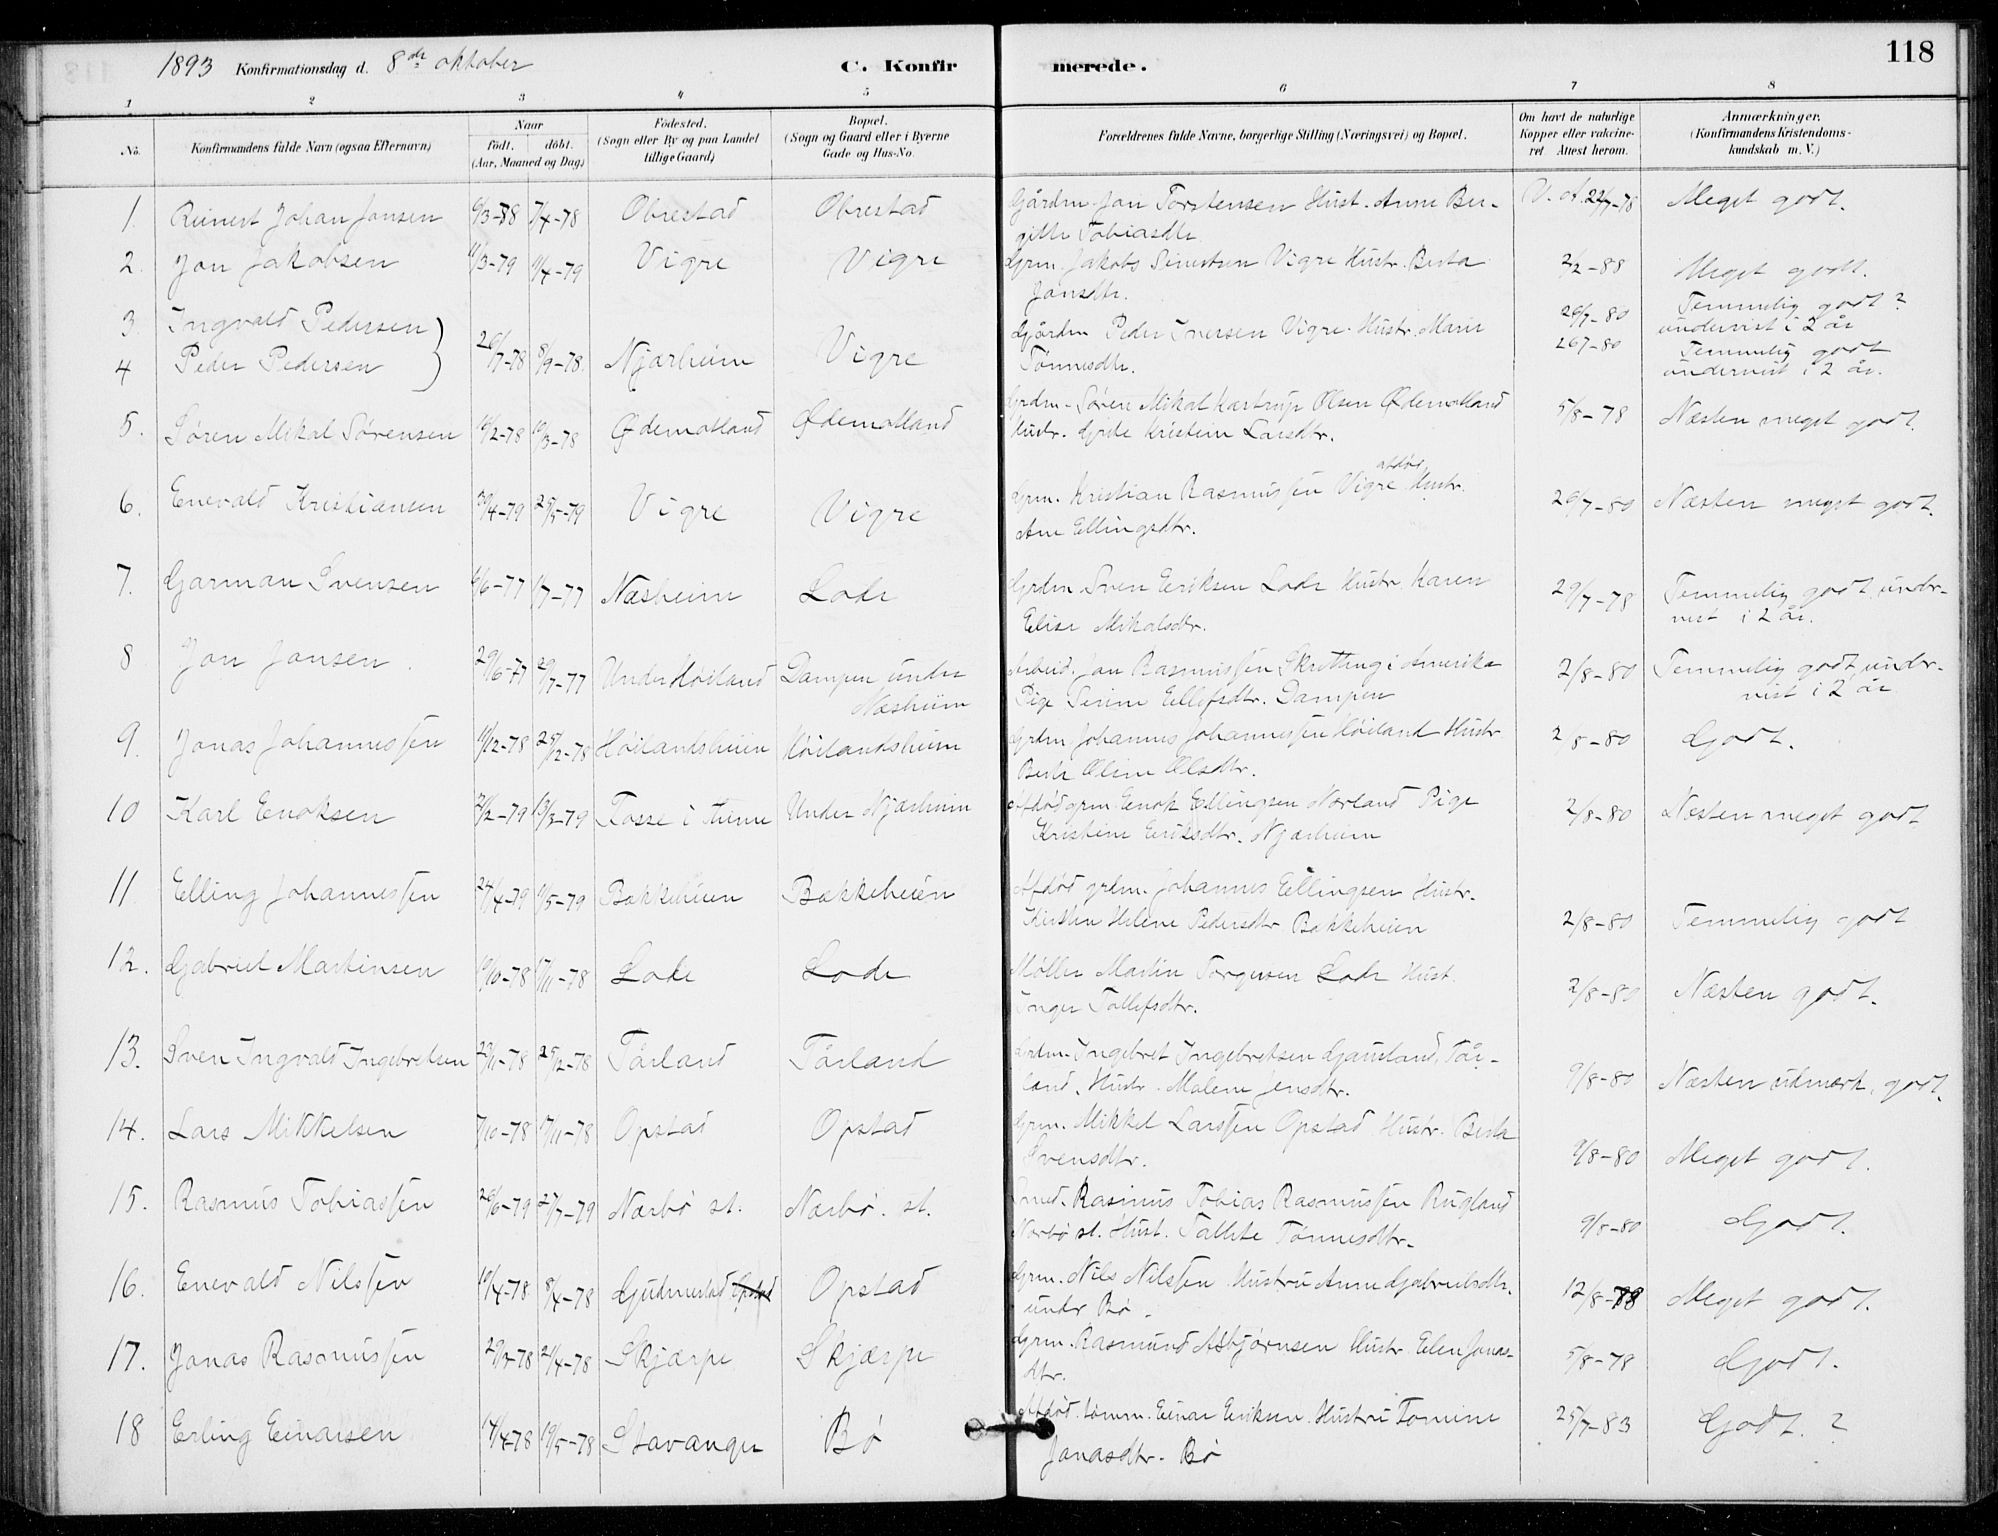 118
1893 Konfirmationsdag d. 8de oktober C. Konfirmerede.
1 2 3 4 5 6 7 8
No. Konfirmandens fulde Navn (ogsaa Efternavn) Naar født. døbt. (Aar, Maaned og Dag) Fødested. (Sogn eller By og paa Landet tillige Gaard) Bopæl. (Sogn og Gaard eller i Byerne Gade og Hus-No. Forældrenes fulde Navne, borgerlige Stilling (Næringsvei) og Bopæl. Om havt de naturlige Kopper eller vakcineret. Attest herom. Anmærkninger. (Konfirmandens Kristendomskundskab m. V.)
1. Reinert Johan Jansen 6/3-78 7/4-78 Obrestad Obrestad Gårdm. Jan Torstensen Hust. Anne Ber- V. at. 22/7-78 Meget godt.
githe Tobiasdtr.
2. Jon Jakobsen 11/3-79 11/4-79 Vigre Vigre Grm. Jakob Sivertsen Vigre Hustr. Berta 2/2-88 Meget godt.
Jonsdtr.
3. Ingvald Pedersen 26/7-78 8/9-78 Njærheim Vigre Gårdm. Peder Iversen Vigre Hustr. Marie 26/7-80 Temmelig godt?
undervist i 2 år
4 Peder Pedersen Tønnesdtr. 267-80 Temmelig godt
undervist i 2 år.
5. Søren Mikal Sørensen 16/2-78 10/3-78 Ødemotland Ødemotland Grdm. Søren Mikal Kastrup Olsen Ødemotland 5/8-78 Næsten meget godt.
Hustr. Grete Kristein Larsdtr.
6. Enevald Kristiansen 30/4-79 25/5-79 Vigre Vigre Grm. Kristian Rasmussen Vigre afdød, Hustr. 26/7-80 Næsten meget godt.
Ane Ellingsdtr.
7. Garman Svensen 6/6-77 1/7-77 Næsheim Lode Grdm. Sven Eriksen Lode Hustr. Karen 29/7-78 Temmelig godt under-
Elise Mikalsdtr. vist i 2 år.
8 Jon Jansen. 29/6-77 29/7-77 Under Høiland Dampen under Arbeid. Jan Rasmussen Skretting i Amerika 2/8-80 Temmelig godt, under-
Næsheim Pige Serine Ellefsdtr. Dampen vist i 2 år
9. Jonas Johannessen 10/12-78 25/12-78 Høilandsheien Høilandsheim Grdm. Johannes Johannessen Høiland Hustr. 2/8-80 Godt.
Berte Oline Olsdtr.
10 Karl Enoksen 2/2-79 13/3-79 Fosse i Time Under Njærheim Afdød grm. Enok Ellingsen Nærland Pige 2/8-80 Næsten meget godt
Kristine Eriksdtr. Njærheim
11 Elling Johannessen 24/4-79 11/5-79 Bakkeheien Bakkeheien Afdød grdm. Johannes Ellingsen Hustr.
Kirsten Helene Pedersdtr. Bakkeheien 2/8-80 Temmelig godt
12. Gabriel Martinsen 19/10-78 17/11-78 Lode Lode Møller Martin Torgersen Lode Hust.
Inger Tollefsdtr. 2/8-80 Næsten godt.
13. Sven Ingvald Ingebretsen 29/11-78 25/12-78 Tårland Tårland Grdm. Ingebret Ingebretsen Gauland, Tår-
land, Hustr. Malene Jensdtr. 9/8-80 Næsten udmærk. godt.
14. Lars Mikkelsen 7/10-78 17/11-78 Opstad Opstad Grm. Mikkel Larssen Opstad Hustr. Berta
Svensdtr. 9/8-80 Meget godt.
15. Rasmus Tobiassen 26/6-79 27/7-79 Nærbø st. Nærbø. st. Smed. Rasmus Tobias Rasmussen Rugland
Nærbø st. Hust. Tallete Tønnesdtr. 9/8-80 Godt.
16. Enevald Nilssen 10/4-78 8/4-78 Gudmestad Opstad Opstad Grm. Nils Nilssen Hustru Anne Gabrielsdtr. 12/8-78 Meget godt.
under Bø.
17. Jonas Rasmussen 29/3-78 21/4-78 Skjærpe Skjærpe Grm. Rasmund Asbjørnsen Hustr. Elen Jonas- 5/8-78 Godt.
dtr.
18 Erling Einarsen 14/4-78 19/5-78 Stavanger Bø Afdød. tømm. Einar Eriksen. Hustru Tomine 25/7-83 Godt.?
Jonasdtr. Bø